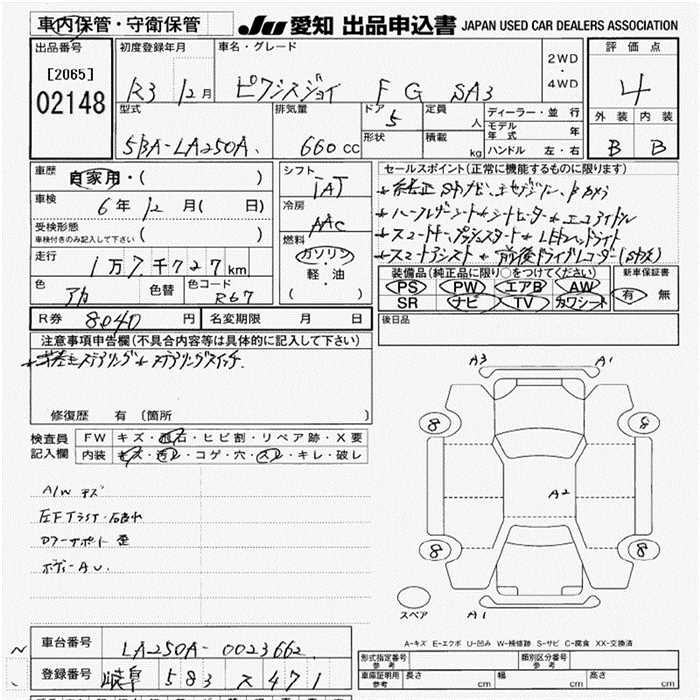 車内保管・守衛保管 JU 愛知 出品申込書 JAPAN USED CAR DEALERS ASSOCIATION
出品番号 初度登録年月 車名・グレード 2WD・4WD 評価点
[2065]
02148 R3 12月 ピクシスジョイ F G SA3 4
型式 排気量 ドア 定員 ディーラー・並行 外装 内装
5BA-LA250A. 660cc 5 人 モデル年式 年 B B
形状 積載 kg ハンドル 左・右
車歴 自家用・( ) シフト セールスポイント(正常に機能するものに限ります)
車検 6年12月( 日) IAT
受検形態 冷房 *ハーフレザーシート*シートヒーター*エコアイドル
車検付きのみ記入して下さい ( ) AAC *スマートキープッシュスタート*LEDヘッドライト
走行 1万7千727km 燃料 *スマートアシスト*前後ドライブレコーダー
ガソリン・軽・油 ( ) 装備品(純正品に限り○をつけてください) 新車保証書
色 アカ 色替 色コード R67 PS PW エアB AW 有 無
SR ナビ TV カワシート
R券 8040円 名変期限 月 日 後日品
注意事項申告欄(不具合内容等は具体的に記入して下さい)
ステアリング*ステアリングスイッチ.
修復歴 有 (箇所 )
A3 A1
検査員 FW キズ・飛石・ヒビ割・リペア跡・X要
記入欄 内装 キズ・汚レ・コゲ・穴・スレ・キレ・破レ
8 8
A/W キズ
A2
左Fガラス・石飛れ
コアーサポート 歪
8 8
ボディーAU.
スペア A1
A-キズ E-エクボ U-凹み W-補修跡 S-サビ C-腐食 XX-交換済
車台番号 LA250A-0023662 形式指定番号 参考 類別区分番号 参考
登録番号 岐阜 583 ス 471 車庫証明用 参考 長さ cm 幅 cm 高さ cm